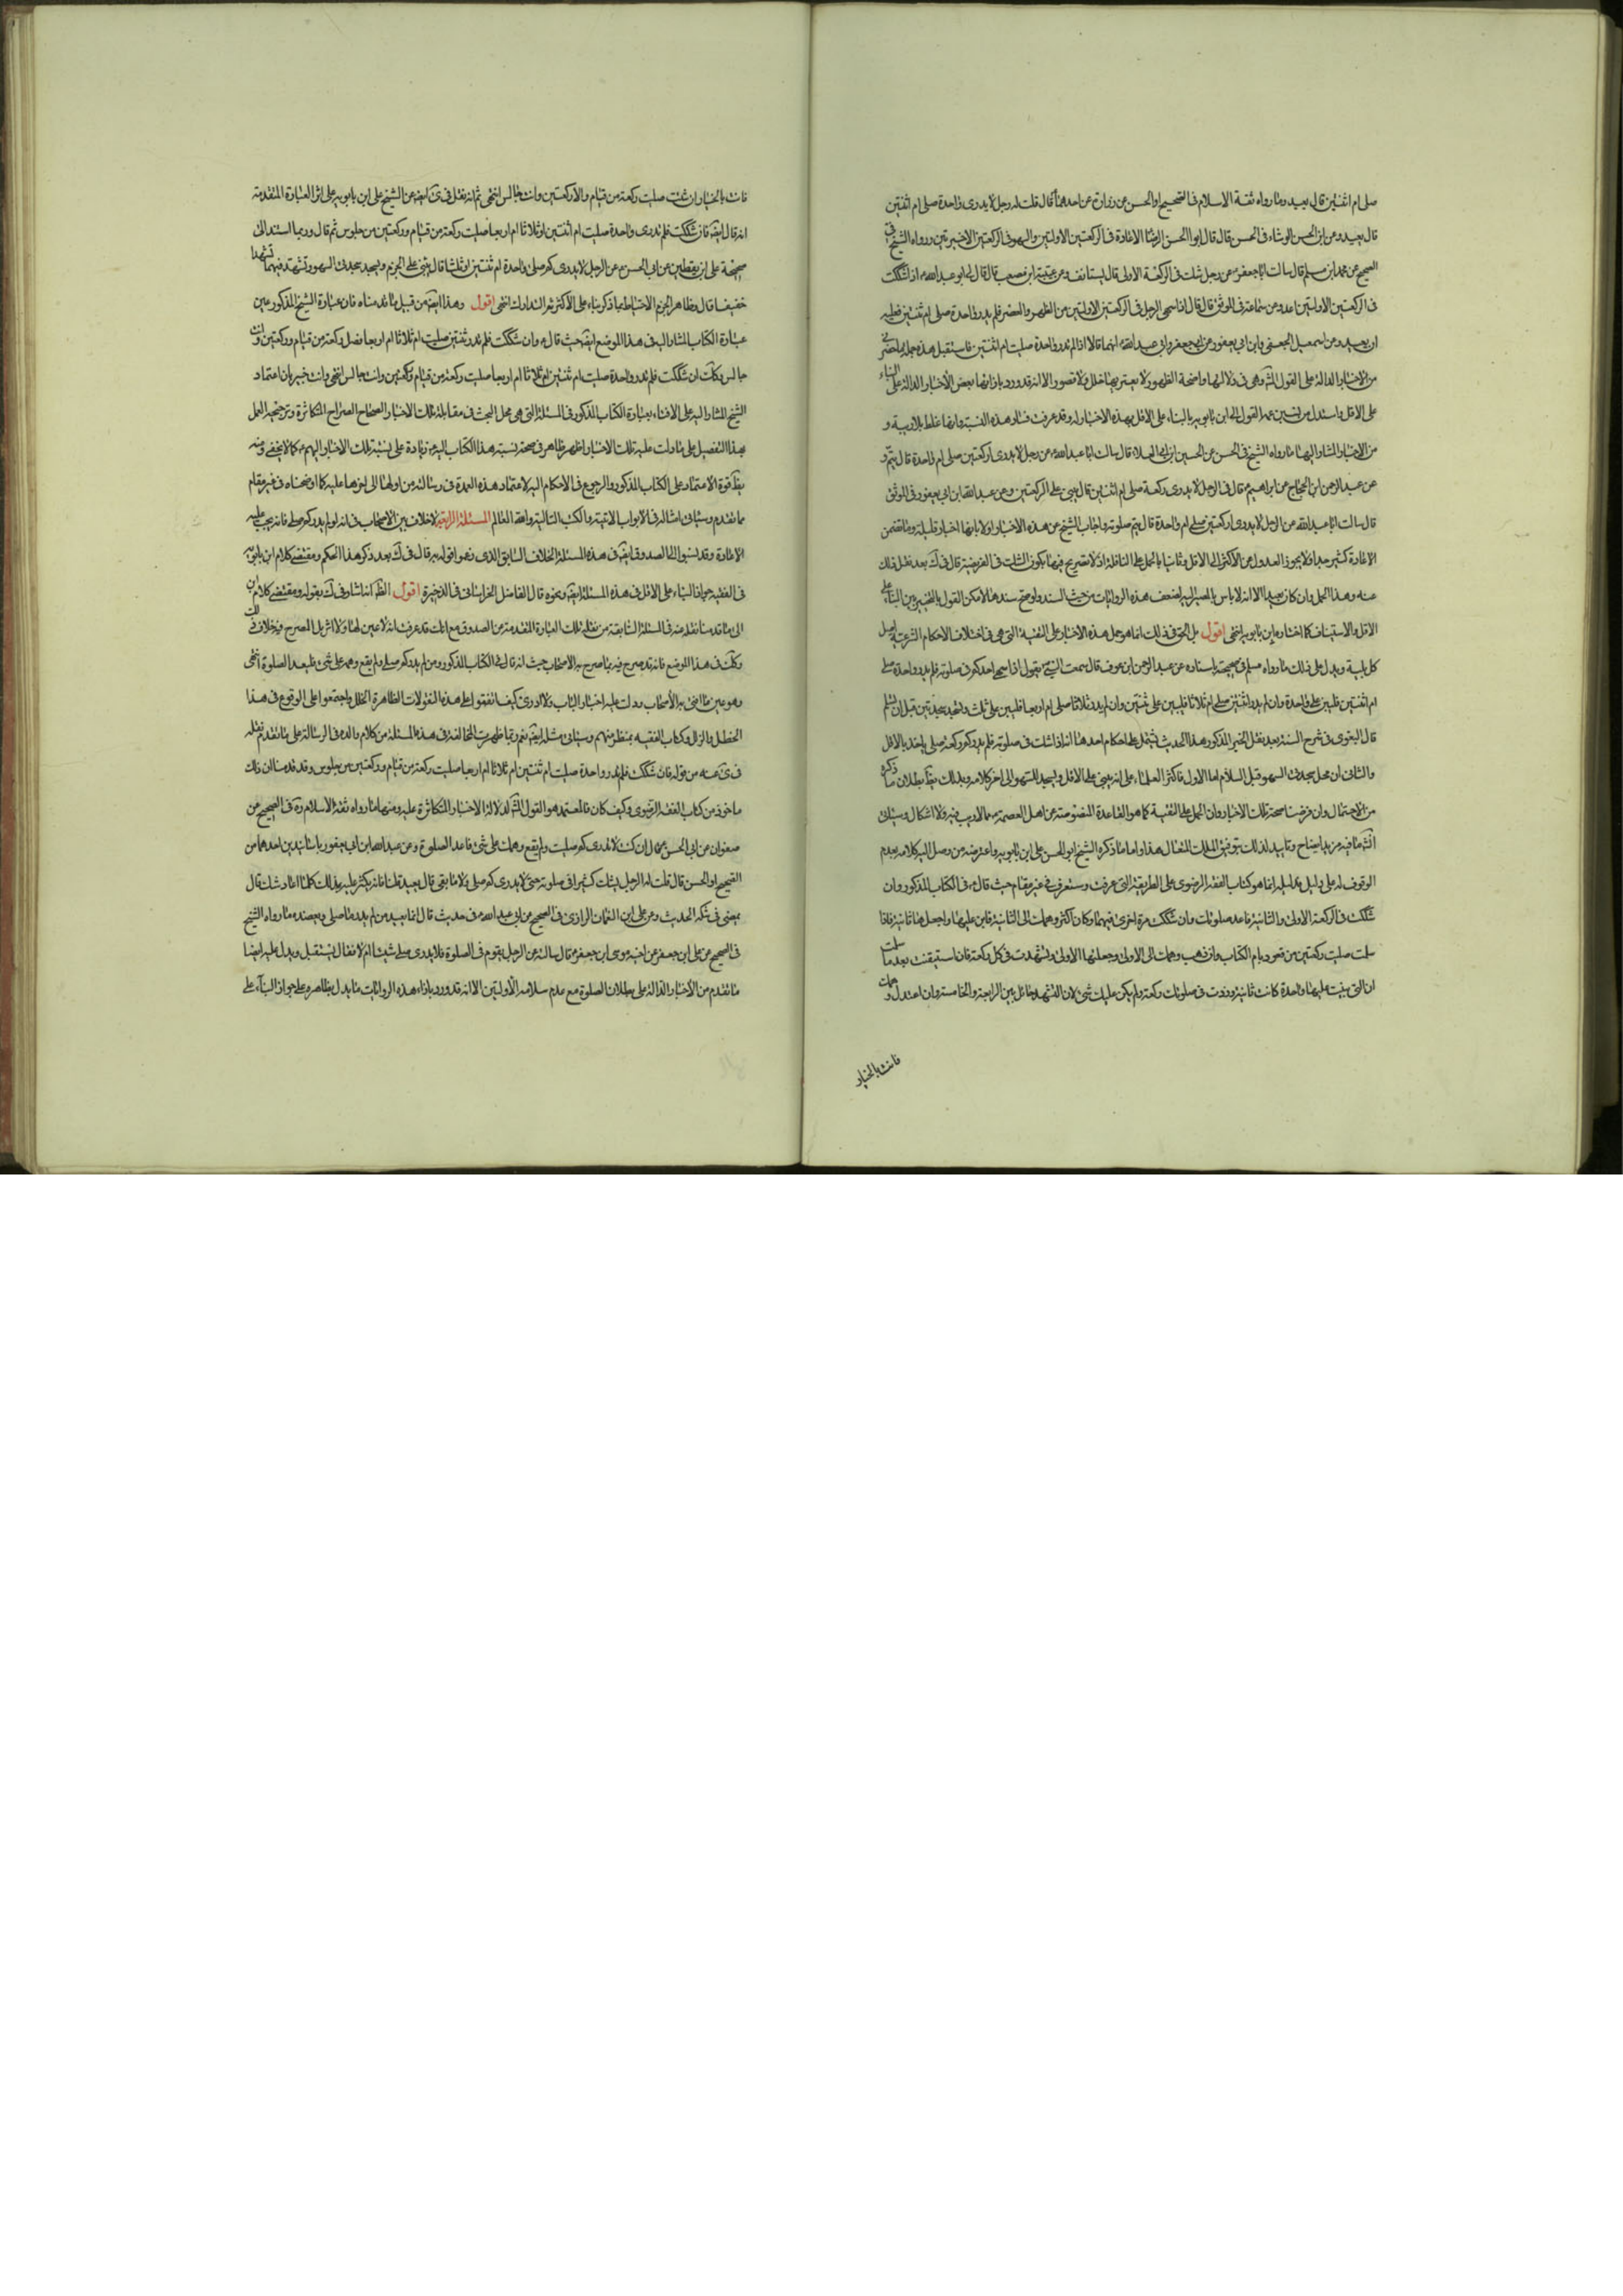 صلى ام اثنتين قال يعيد وما رواه ثقة الاسلام في الصحيح او الحسن عن زرارة عن احدهما قال قلت له رجل لا يدرى واحدة صلى ام اثنتين
قال يعيد وعن ابن الحسن الوشاء في الحسن قال قال ابو الحسن الرضا الاعادة في الركعتين الاولتين والسهو في الركعتين الاخيرتين ورواه الشيخ في
الصحيح عن محمد ابن مسلم قال سالت ابا جعفر عن رجل شك في الركعة الاولى قال يستانف وعن عنبسة ابن مصعب قال قال لي ابو عبد الله اذا شككت
في الركعتين الاولتين اعد وعن سماعة في الموثق قال قال اذا سهى الرجل في الركعتين الاولتين من الظهر والعصر فلم يدر واحدة صلى ام ثنتين فعليه
ان يعيد وعن اسمعيل الجعفي وابن ابي يعفور عن ابي جعفر وابي عبد الله انهما قالا اذا لم تدر واحدة صليت ام اثنتين فاستقبل هذه جملة ما حضرني
من الاخبار الدالة على القول المش وهي في دلالتها واضحة الظهور لا يعتريها خلل ولا قصور الا انه قد ورد بازائها بعض الأخبار الدالة على البناء
على الاقل واستدل من نسب هذا القول الى ابن بابويه بالبناء على الاقل بهذه الاخبار له وقد عرفت فساد هذه النسبة وانها غلط بلا ريبة و
من الاخبار المشار اليها ما رواه الشيخ في الحسن عن الحسين ابن ابي العلا قال سالت ابا عبد الله عن رجل لا يدرى اركعتين صلى ام واحدة قال يتم و
عن عبد الرحمن ابن الحجاج عن ابي ابراهيم قال في الرجل لا يدرى ركعة صلى ام اثنتين قال يبنى على الركعتين وعن عبد الله ابن ابي يعفور في الموثق
قال سالت ابا عبد الله عن الرجل لا يدرى اركعتين صلى ام واحدة قال يتم صلوته واجاب الشيخ عن هذه الاخبار اولا بانها اخبار قليلة وما تضمن
الاعادة كثير جدا ولا يجوز العدول عن الاكثر الى الاقل وثانيا بالحمل على النافلة اذ لا تصريح فيها بكون الشك في الفريضة قال في ك بعد نقل ذلك
عنه وهذا الحمل وان كان بعيدا الا انه لا باس بالمصير اليه لضعف هذه الروايات من حيث السند ولو صح سندها لامكن القول بالتخيير بين البناء على
الاقل والاستيناف كما اختاره ابن بابويه انتهى اقول بل الحق في ذلك انما هو حمل هذه الاخبار على التقية التي هي في اختلاف الاحكام الشرعية اصل
كل بلية ويدل على ذلك ما رواه مسلم في صحيحه باسناده عن عبد الرحمن ابن عوف قال سمعت النبي يقول اذا سهى احدكم في صلوته فلم يدر واحدة صلى
ام اثنتين فليبن على واحدة وان لم يدر اثنتين صلى ام ثلاثا فليبن على ثنتين وان لم يدر ثلاثا صلى ام اربعا فليبن على ثلث وليسجد سجدتين قبل ان يسلم
قال البغوى في شرح السنة بعد نقل الخبر المذكور هذا الحديث يشتمل على احكام احدها انه اذا شك في صلوته فلم يدر كم ركعة صلى ياخذ بالاقل
والثاني ان محل سجدتي السهو قبل السلام اما الاول فاكثر العلماء على انه يبنى على الاقل ويسجد للسهو الى اخر كلامه وبذلك يظهر بطلان ما ذكره
من الاحتمال وان فرضنا صحة تلك الاخبار وان الحمل على التقية كما هو القاعدة المنصوصة عن اهل العصمة مما لا ريب فيه ولا اشكال وسياتي
انشه ما فيه مزيد ايضاح وتاييد لذلك بتوفيق الملك المتعال هذا واما ما ذكره الشيخ ابو الحسن على ابن بابويه واعترضه من وصل اليه كلامه بعدم
الوقوف له على دليل فدليله انما هو كتاب الفقه الرضوى على الطريقة التي عرفت وستعرف في غير مقام حيث قال في الكتاب المذكور وان
شككت في الركعة الاولى والثانية فاعد صلوتك وان شككت مرة اخرى فيهما وكان اكثر وهمك الى الثانية فابن عليها واجعلها ثانية فاذا
سلمت صليت ركعتين من قعود بام الكتاب وان ذهب وهمك الى الاولى وجعلتها الاولى وتشهدت في كل ركعة فان استيقنت بعد ما سلمت
ان التي بنيت عليها واحدة كانت ثانية وزدت في صلوتك ركعة ولم يكن عليك شئ لان التشهد حائل بين الرابعة والخامسة وان اعتدل وهمك
فانت بالخيار
فانت بالخيار ان شئت صليت ركعة من قيام والا ركعتين وانت جالس انتهى ثم انه نقل في ى ايضا عن الشيخ على ابن بابويه على اثر العبارة المتقدمة
انه قال ايضا فان شككت فلم تدرى واحدة صليت ام اثنتين او ثلاثا ام اربعا صليت ركعة من قيام وركعتين من جلوس ثم قال وربما استند الى
صحيحة على ابن يقطين عن ابي الحسن عن الرجل لا يدرى كم صلى واحدة ام ثنتين ام ثلثا قال يبنى على الجزم ويسجد سجدتي السهو ويتشهد فيهما تشهدا
خفيفا قال وظاهر الجزم الاحتياط بما ذكر بناء على الأكثر ثم التدارك انتهى اقول وهذا ايضا من قبيل ما قدمناه فان عبارة الشيخ المذكور عين
عبارة الكتاب المشار اليه في هذا الموضع ايضا حيث قال وان شككت فلم تدر ثنتين صليت ام ثلاثا ام اربعا فصل ركعة من قيام وركعتين وانت
جالس وكك ان شككت فلم تدر واحدة صليت ام ثنتين ام ثلاثا ام اربعا صليت ركعة من قيام وركعتين وانت جالس انتهى وانت خبير بان اعتماد
الشيخ المشار اليه على الافتاء بعبارة الكتاب المذكور في المسئلة التي هي محل البحث في مقابلة تلك الاخبار الصحاح الصراح المتكاثرة وترجيحه العمل
بهذا التفصيل على ما دلت عليه تلك الاخبار اظهر ظاهر في صحة نسبة هذا الكتاب اليه زيادة على نسبة تلك الاخبار اليهم كما لا يخفى ومنه
يظهر قوة الاعتماد على الكتاب المذكور والرجوع في الاحكام اليه لاعتماد هذه العمدة في رسالته من اولها الى اخرها عليه كما اوضحناه في غير مقام
مما تقدم وسياتي امثاله في الابواب الاتية والكتب التالية والله العالم المسئلة الرابعة لا خلاف بين الاصحاب في انه لو لم يدر كم صلى فانه يجب عليه
الاعادة وقد نسبوا الى الصدوق ايضا في هذه المسئلة الخلاف السابق الذى وهموا قوله به قال في ك بعد ذكر هذا الحكم ومقتضى كلام ابن بابويه
في الفقيه جواز البناء على الاقل في هذه المسئلة ايضا ونحوه قال الفاضل الخراساني في الذخيرة اقول الظ انه اشار في ك بقوله ومقتضى كلام ابن
الى ما قدمنا نقله عنه في المسئلة السابقة من نقله تلك العبارة المتقدمة عن الصدوق مع انك قد عرفت انه لا عين لها ولا اثر بل المصرح به خلاف ذلك
وكك في هذا الموضع فانه قد صرح فيه بما صرح به الاصحاب حيث انه قال في الكتاب المذكور ومن لم يدر كم صلى ولم يقع وهمه على شئ فليعد الصلوة انتهى
وهو عين ما افتى به الأصحاب ودلت عليه اخبار الباب ولا ادرى كيف اتفقوا على هذه النقولات الظاهرة الخلل واجتمعوا على الوقوع في هذا
الخطل والزلل وكتاب الفقيه بمنظر منهم وسياتي مثله ايضا نعم ربما ظهرت المخالفة في هذه المسئلة من كلام والده في الرسالة على ما تقدم نقله
في ى عنه من قوله فان شككت فلم تدر واحدة صليت ام ثنتين ام ثلاثا ام اربعا صليت ركعة من قيام وركعتين من جلوس وقد قدمنا ان ذلك
ماخوذ من كتاب الفقه الرضوى وكيف كان فالمعتمد هو القول المش لدلالة الاخبار المتكاثرة عليه ومنها ما رواه ثقة الاسلام ره في الصحيح عن
صفوان عن ابي الحسن قال ان كنت لا تدرى كم صليت ولم يقع وهمك على شئ فاعد الصلوة وعن عبد الله ابن ابي يعفور باسنادين احدهما من
الصحيح او الحسن قال قلت له الرجل يشك كثيرا في صلوته حتى لا يدرى كم صلى ولا ما بقى قال يعيد قلنا فانه يكثر عليه ذلك كلما اعاد شك قال
يمضى في شكه الحديث وعن على ابن النعمان الرازى في الصحيح عن ابي عبد الله في حديث قال انما يعيد من لم يدر ما صلى ويعضده ما رواه الشيخ
في الصحيح عن على ابن جعفر عن اخيه موسى ابن جعفر قال سالته عن الرجل يقوم في الصلوة فلا يدرى صلى شيئا ام لا فقال يستقبل ويدل عليه ايضا
ما تقدم من الأخبار الدالة على بطلان الصلوة مع عدم سلامة الأولتين الا انه قد ورد بازاء هذه الروايات ما يدل بظاهره على جواز البناء على